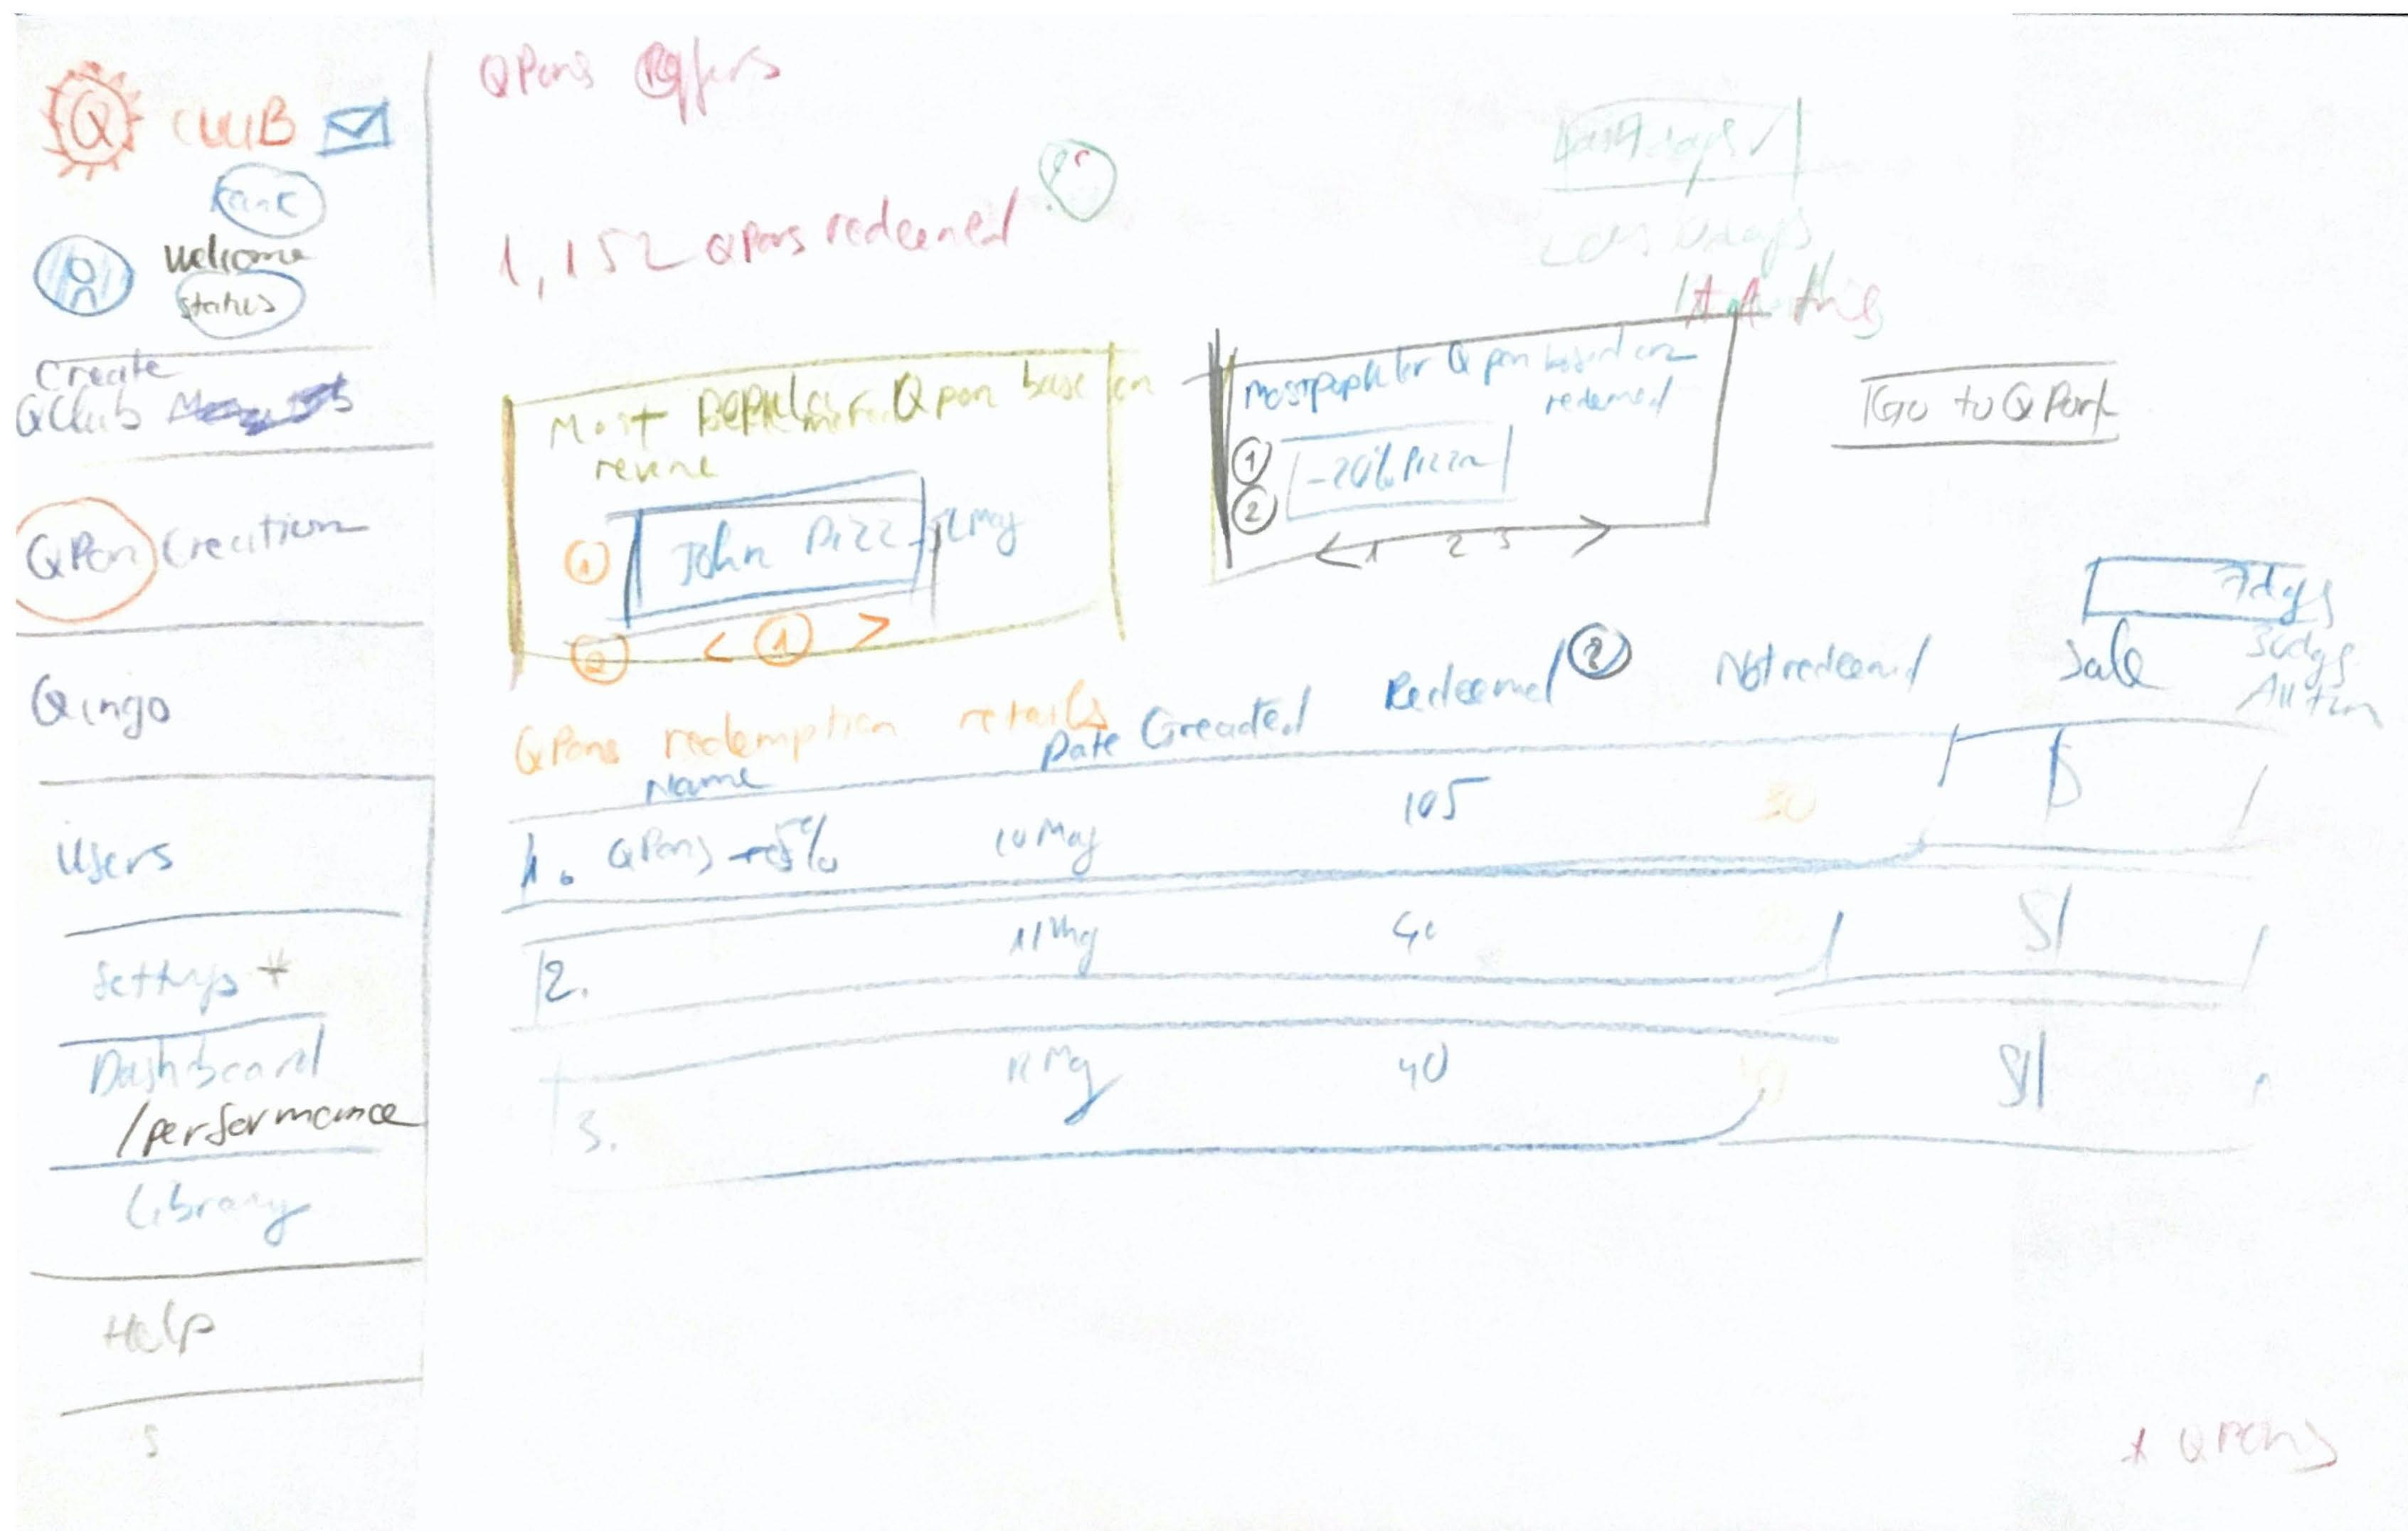 QPons Offers
Q CLUB
Rank
Welcome
status
Create
QClub
QPon Creation
Qingo
Users
Settings
Dashboard
/performance
Library
Help
Last 7 days
1,152 QPons redeemed
Most popular QPon base on
revenue
1 John Pizz
2 < 1 >
Most popular Qpon based on
redemed
1 -20% Pizza
2
< 1 2 3 >
Go to QPon
7 days
30 days
All tim
QPons redemption retails
Name Date Created Redeemed ? Not redeemed Sale
1. QPons -5% 10 May 105 30 $
2. 11 May 40 $
3. 12 May 40 $
+ QPons